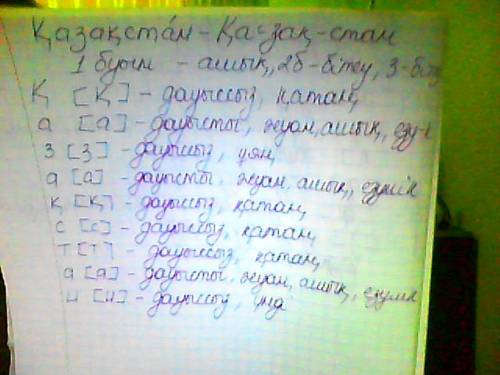 Қазақста́н - Қа-зақ-стан
1 буын - ашық, 2б - бітеу, 3-біту
Қ [Қ] - дауыссыз, қатаң,
а [а] - дауысты, жуан, ашық, езу-к
З [з] - дауыссыз, ұяң,
а [а] - дауысты, жуан, ашық, езулік
қ [қ] - дауыссыз, қатаң,
с [с] - дауыссыз, қатаң,
т [т] - дауыссыз, қатаң,
а [а] - дауысты, жуан, ашық, езулік
н [н] - дауыссыз, үнді